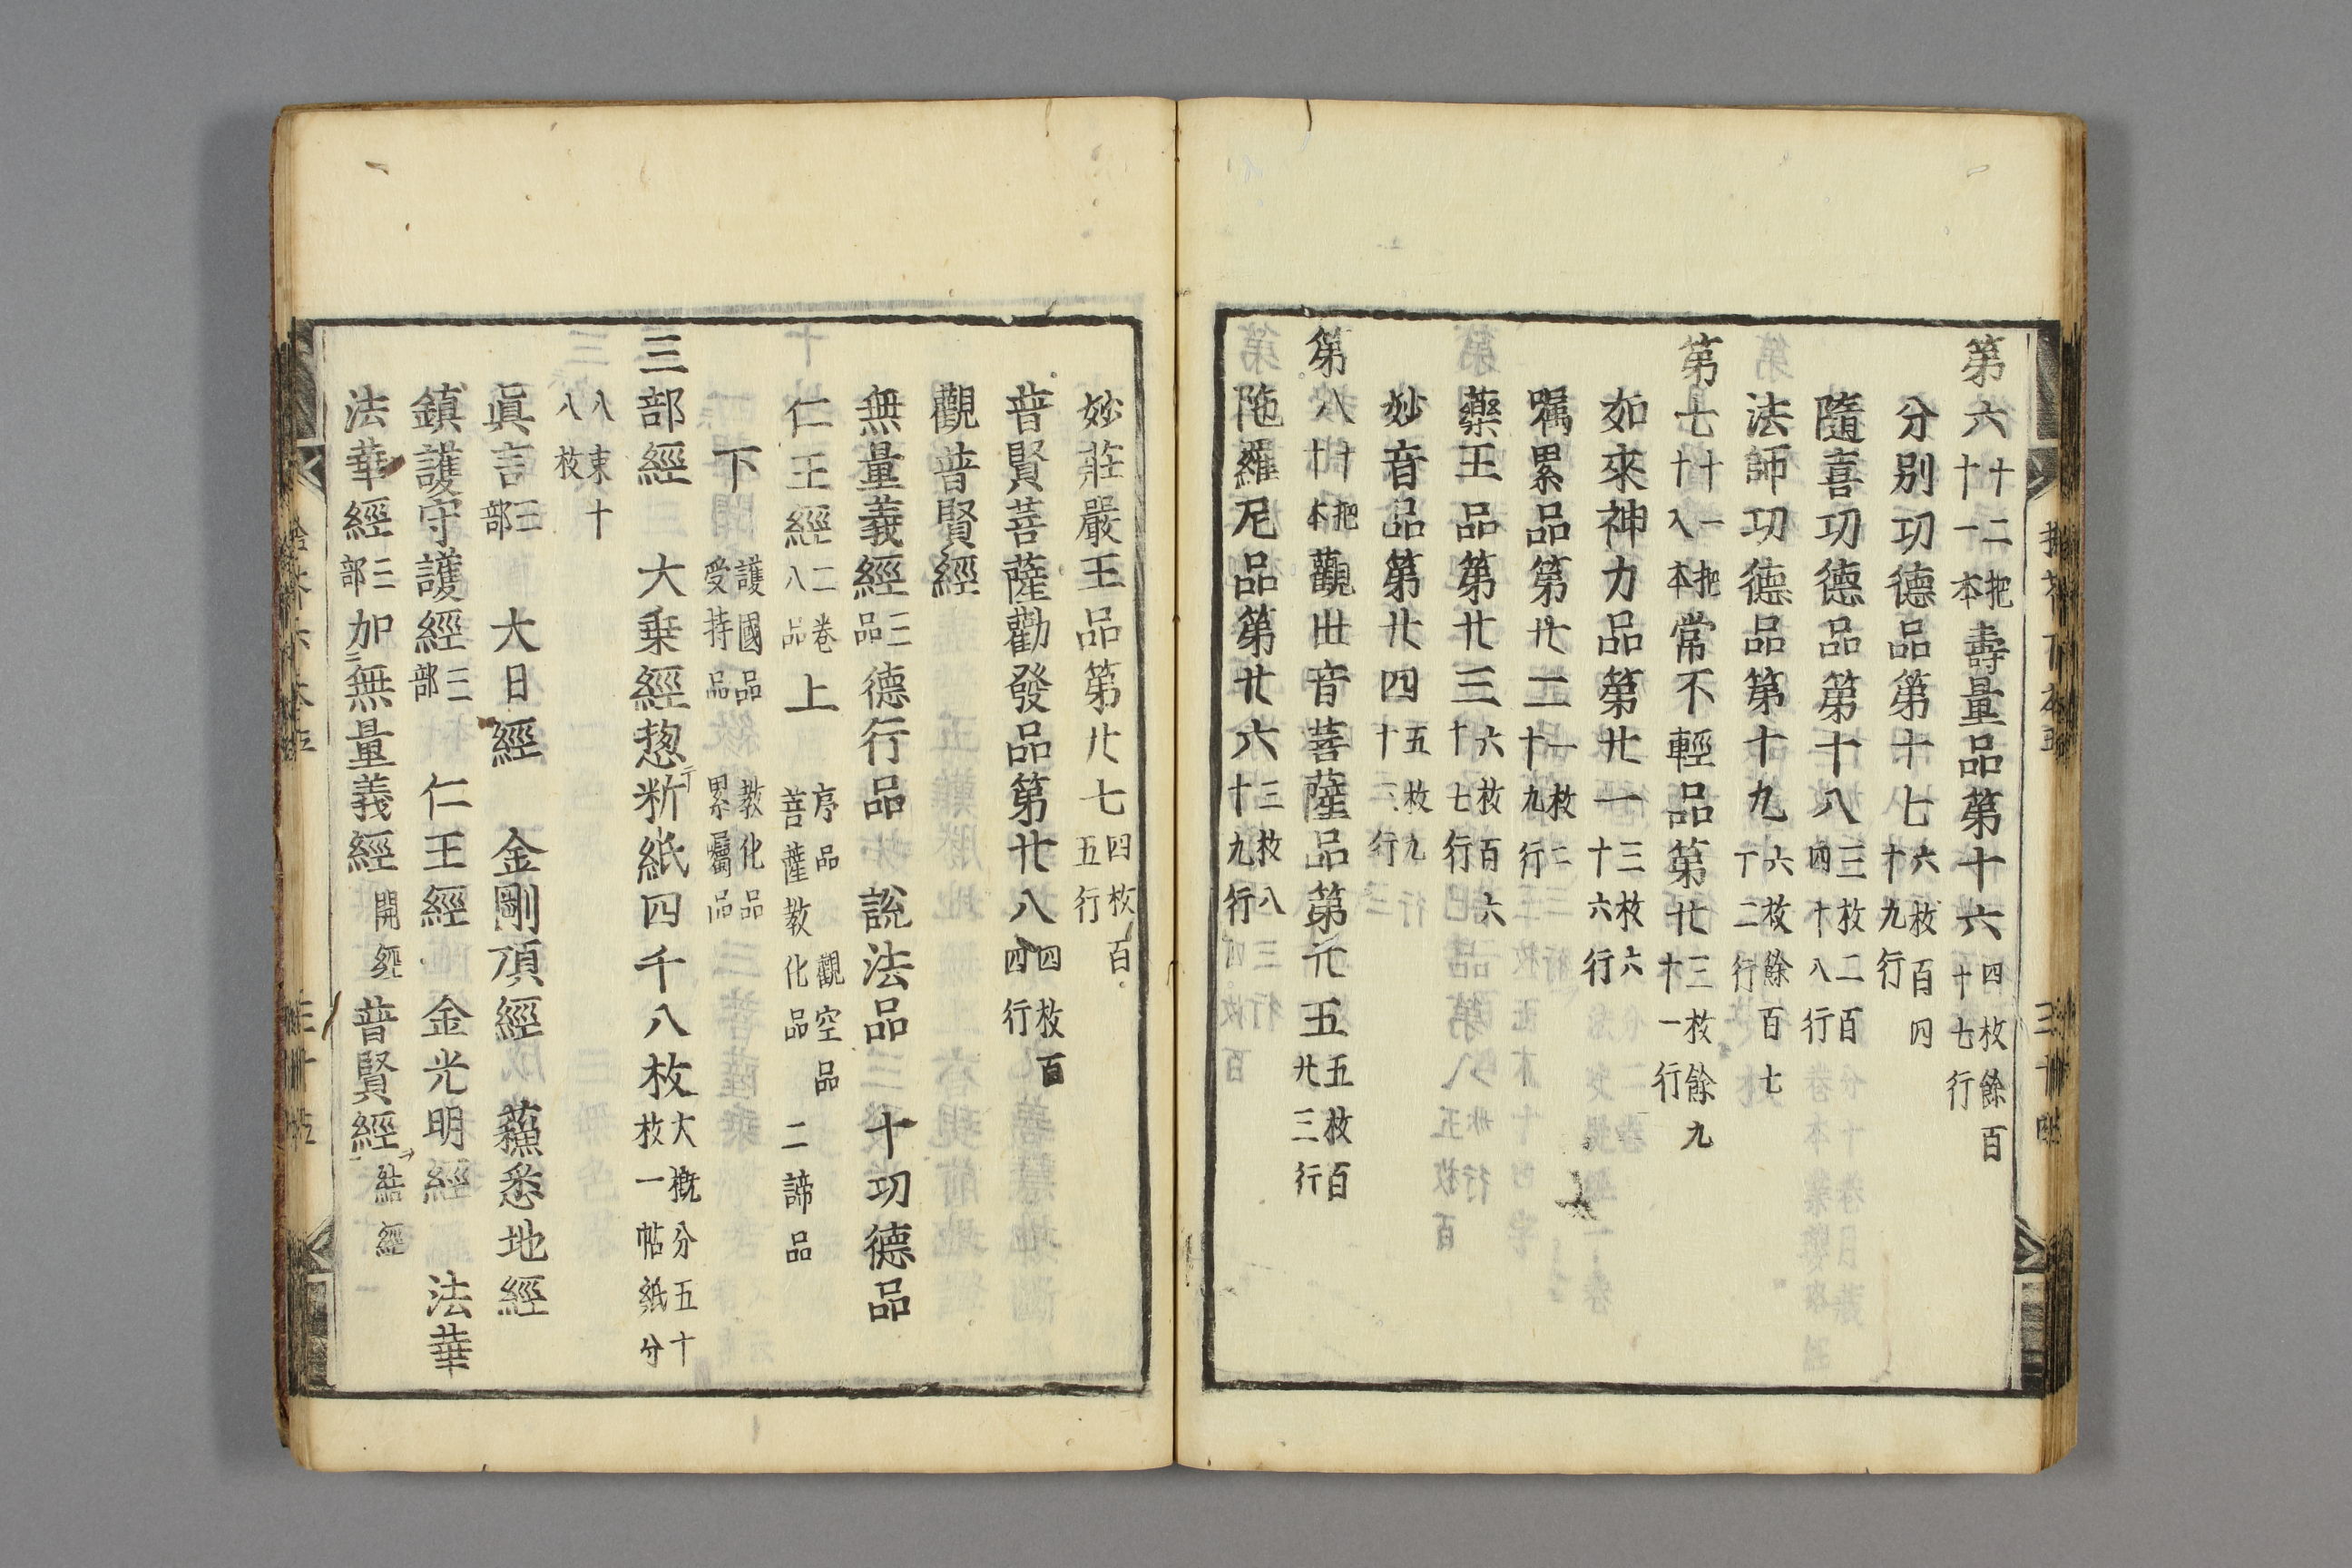 第六十二把十一本壽量品第十六四枚餘百十七行
分別功德品第十七六枚百四十九行
隨喜功德品第十八三枚二百四十八行
法師功德品第十九六枚餘百七丁二行
第七十一把十八本常不輕品第廿三枚餘九十一行
如來神力品第廿一三枚六十六行
嘱累品第廿二一枚二十九行
藥王品第廿三六枚百六十七行
妙音品第廿四五枚九十二行
第八十把十本觀世音菩薩品第廿五五枚百廿三行
陁羅尼品第廿六三枚八十九行
妙莊嚴王品第廿七四枚百五行
普賢菩薩勸發品第廿八四枚百四行
觀普賢經
無量義經三品 德行品 說法品 十功德品
仁王經二卷八品 上 序品 觀空品 菩薩教化品 二諦品
下 護國品 教化品 受持品 累屬品
三部經 大乗經惣𣂰紙四千八枚大概分五十枚一帖紙分
八束十八枚
眞言三部 大日經 金剛頂經 蘓悉地經
鎮護守護經三部 仁王經 金光明經 法華
法華經三部加無量義經開經普賢經結經